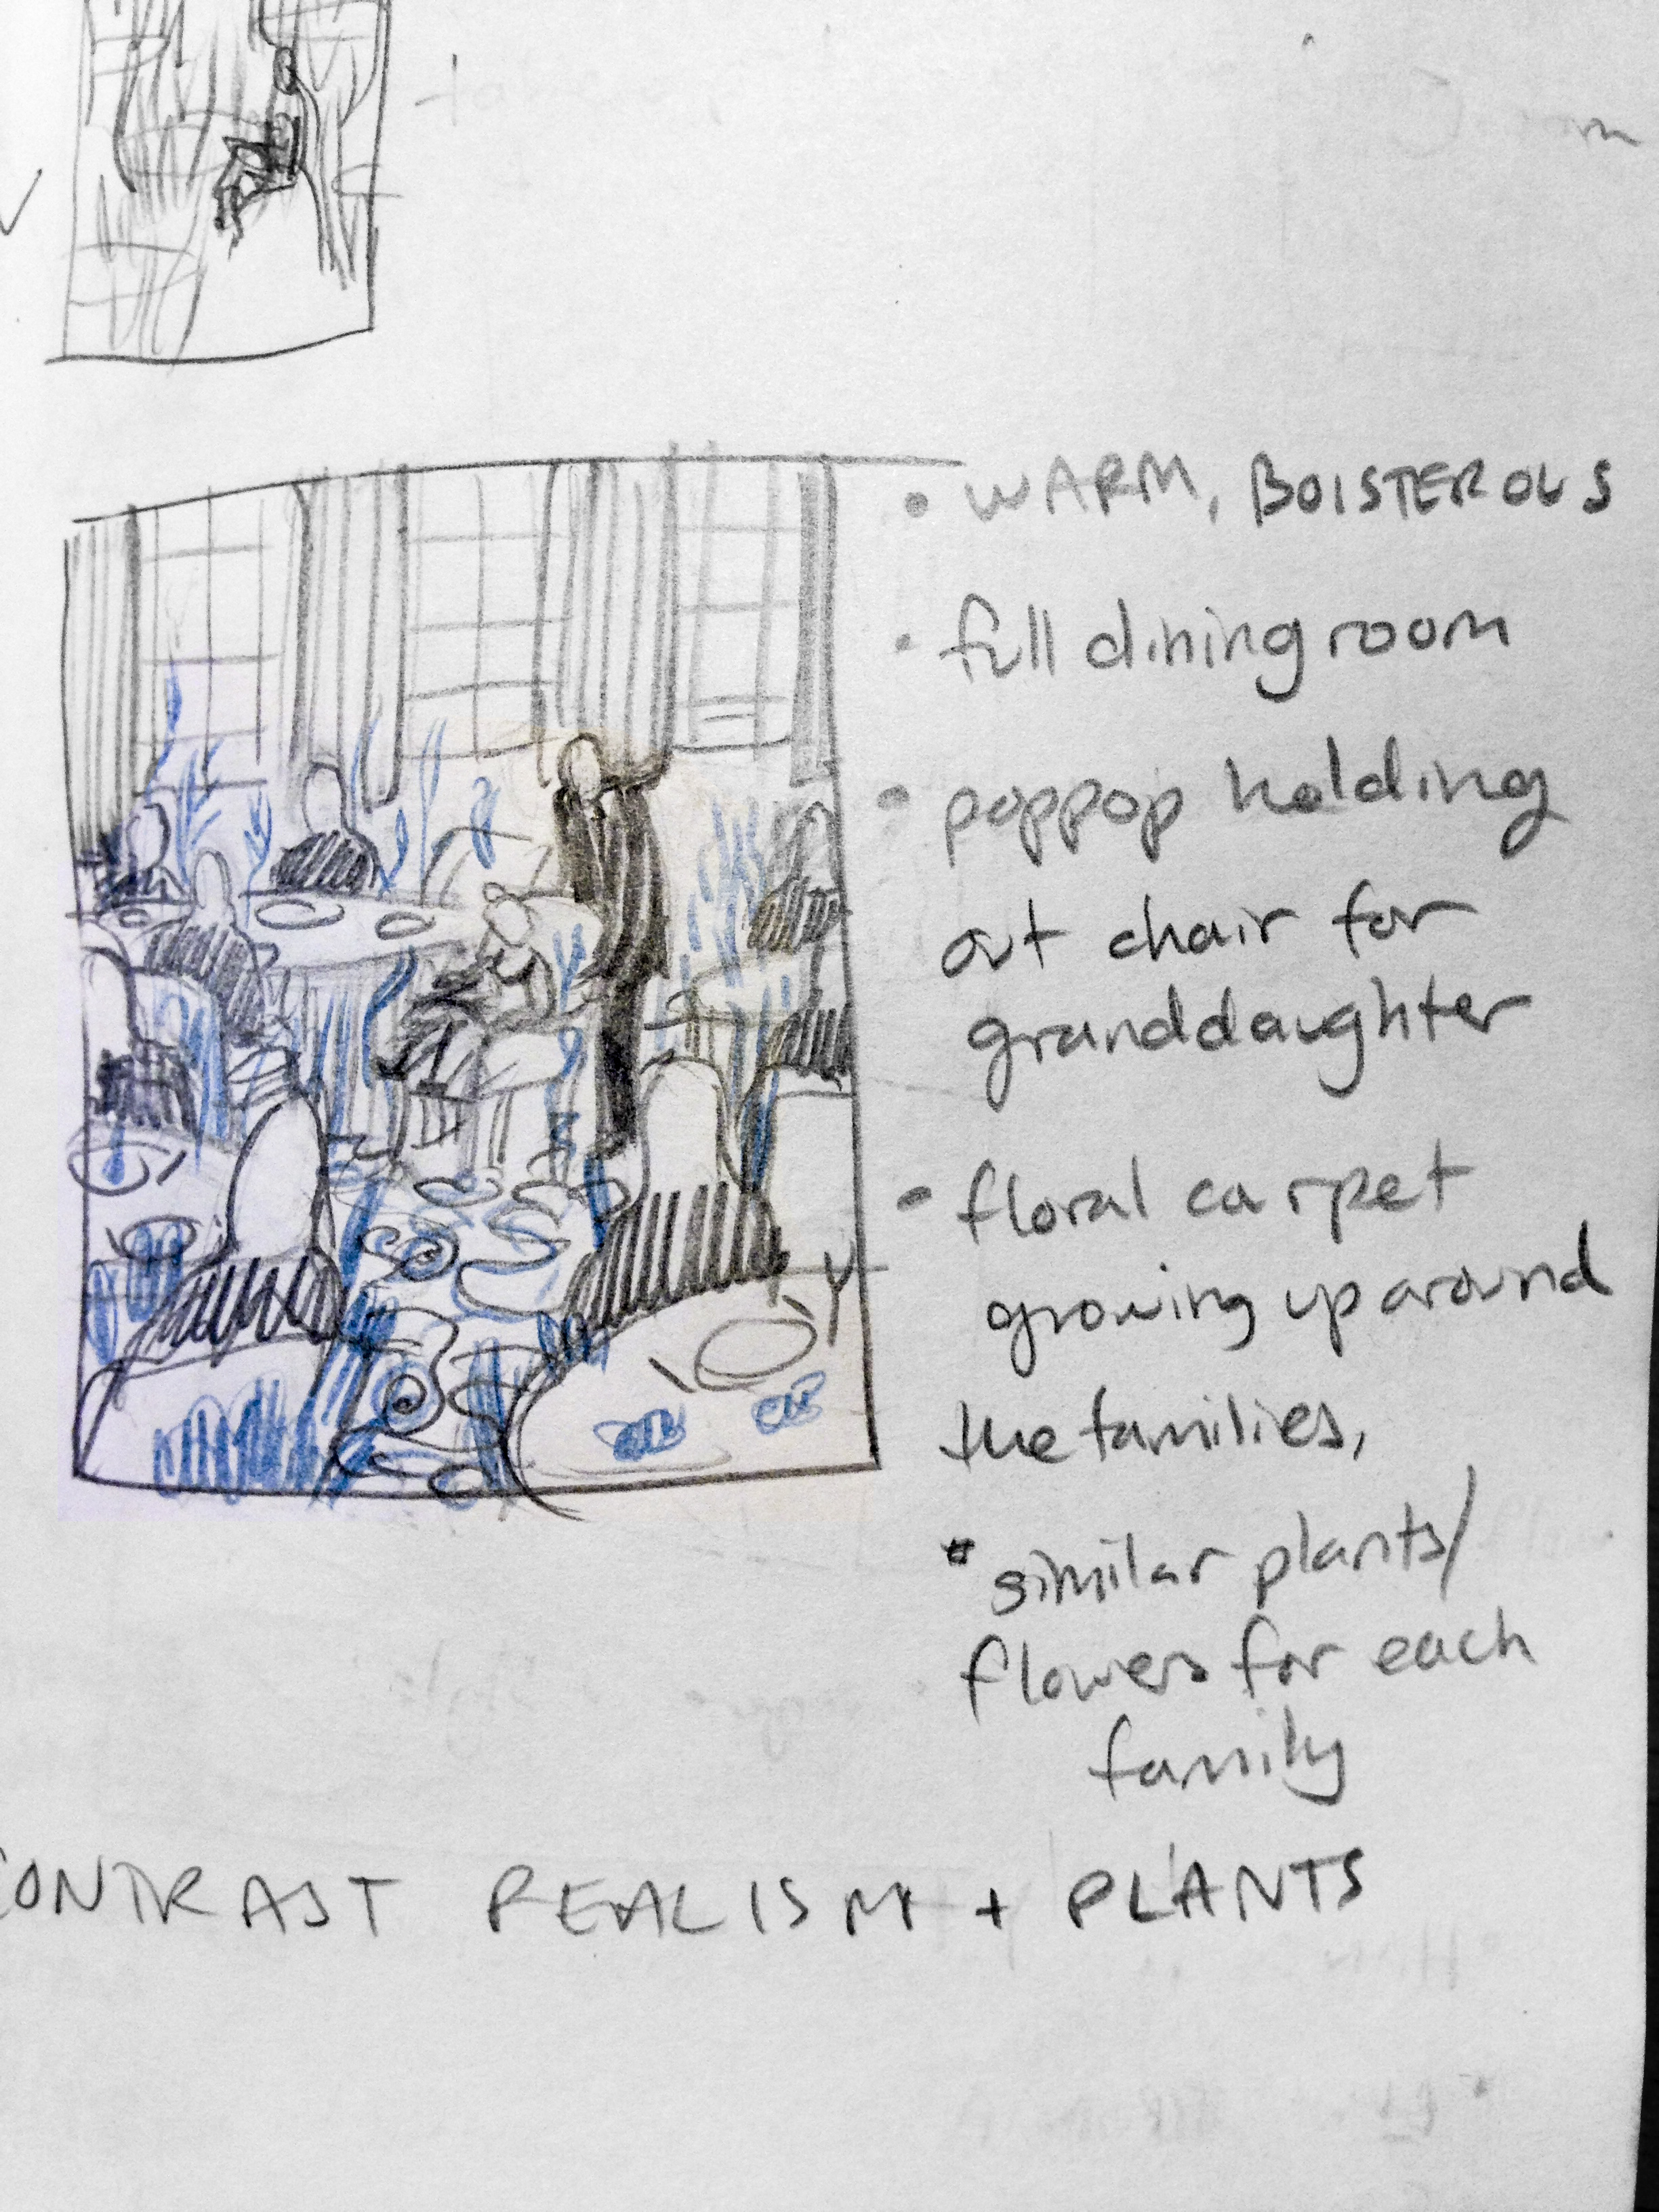 • WARM, BOISTEROUS
• full dining room
• poppop holding
out chair for
granddaughter
• floral carpet
growing up around
the families,
• similar plants/
flowers for each
family
CONTRAST REALISM + PLANTS